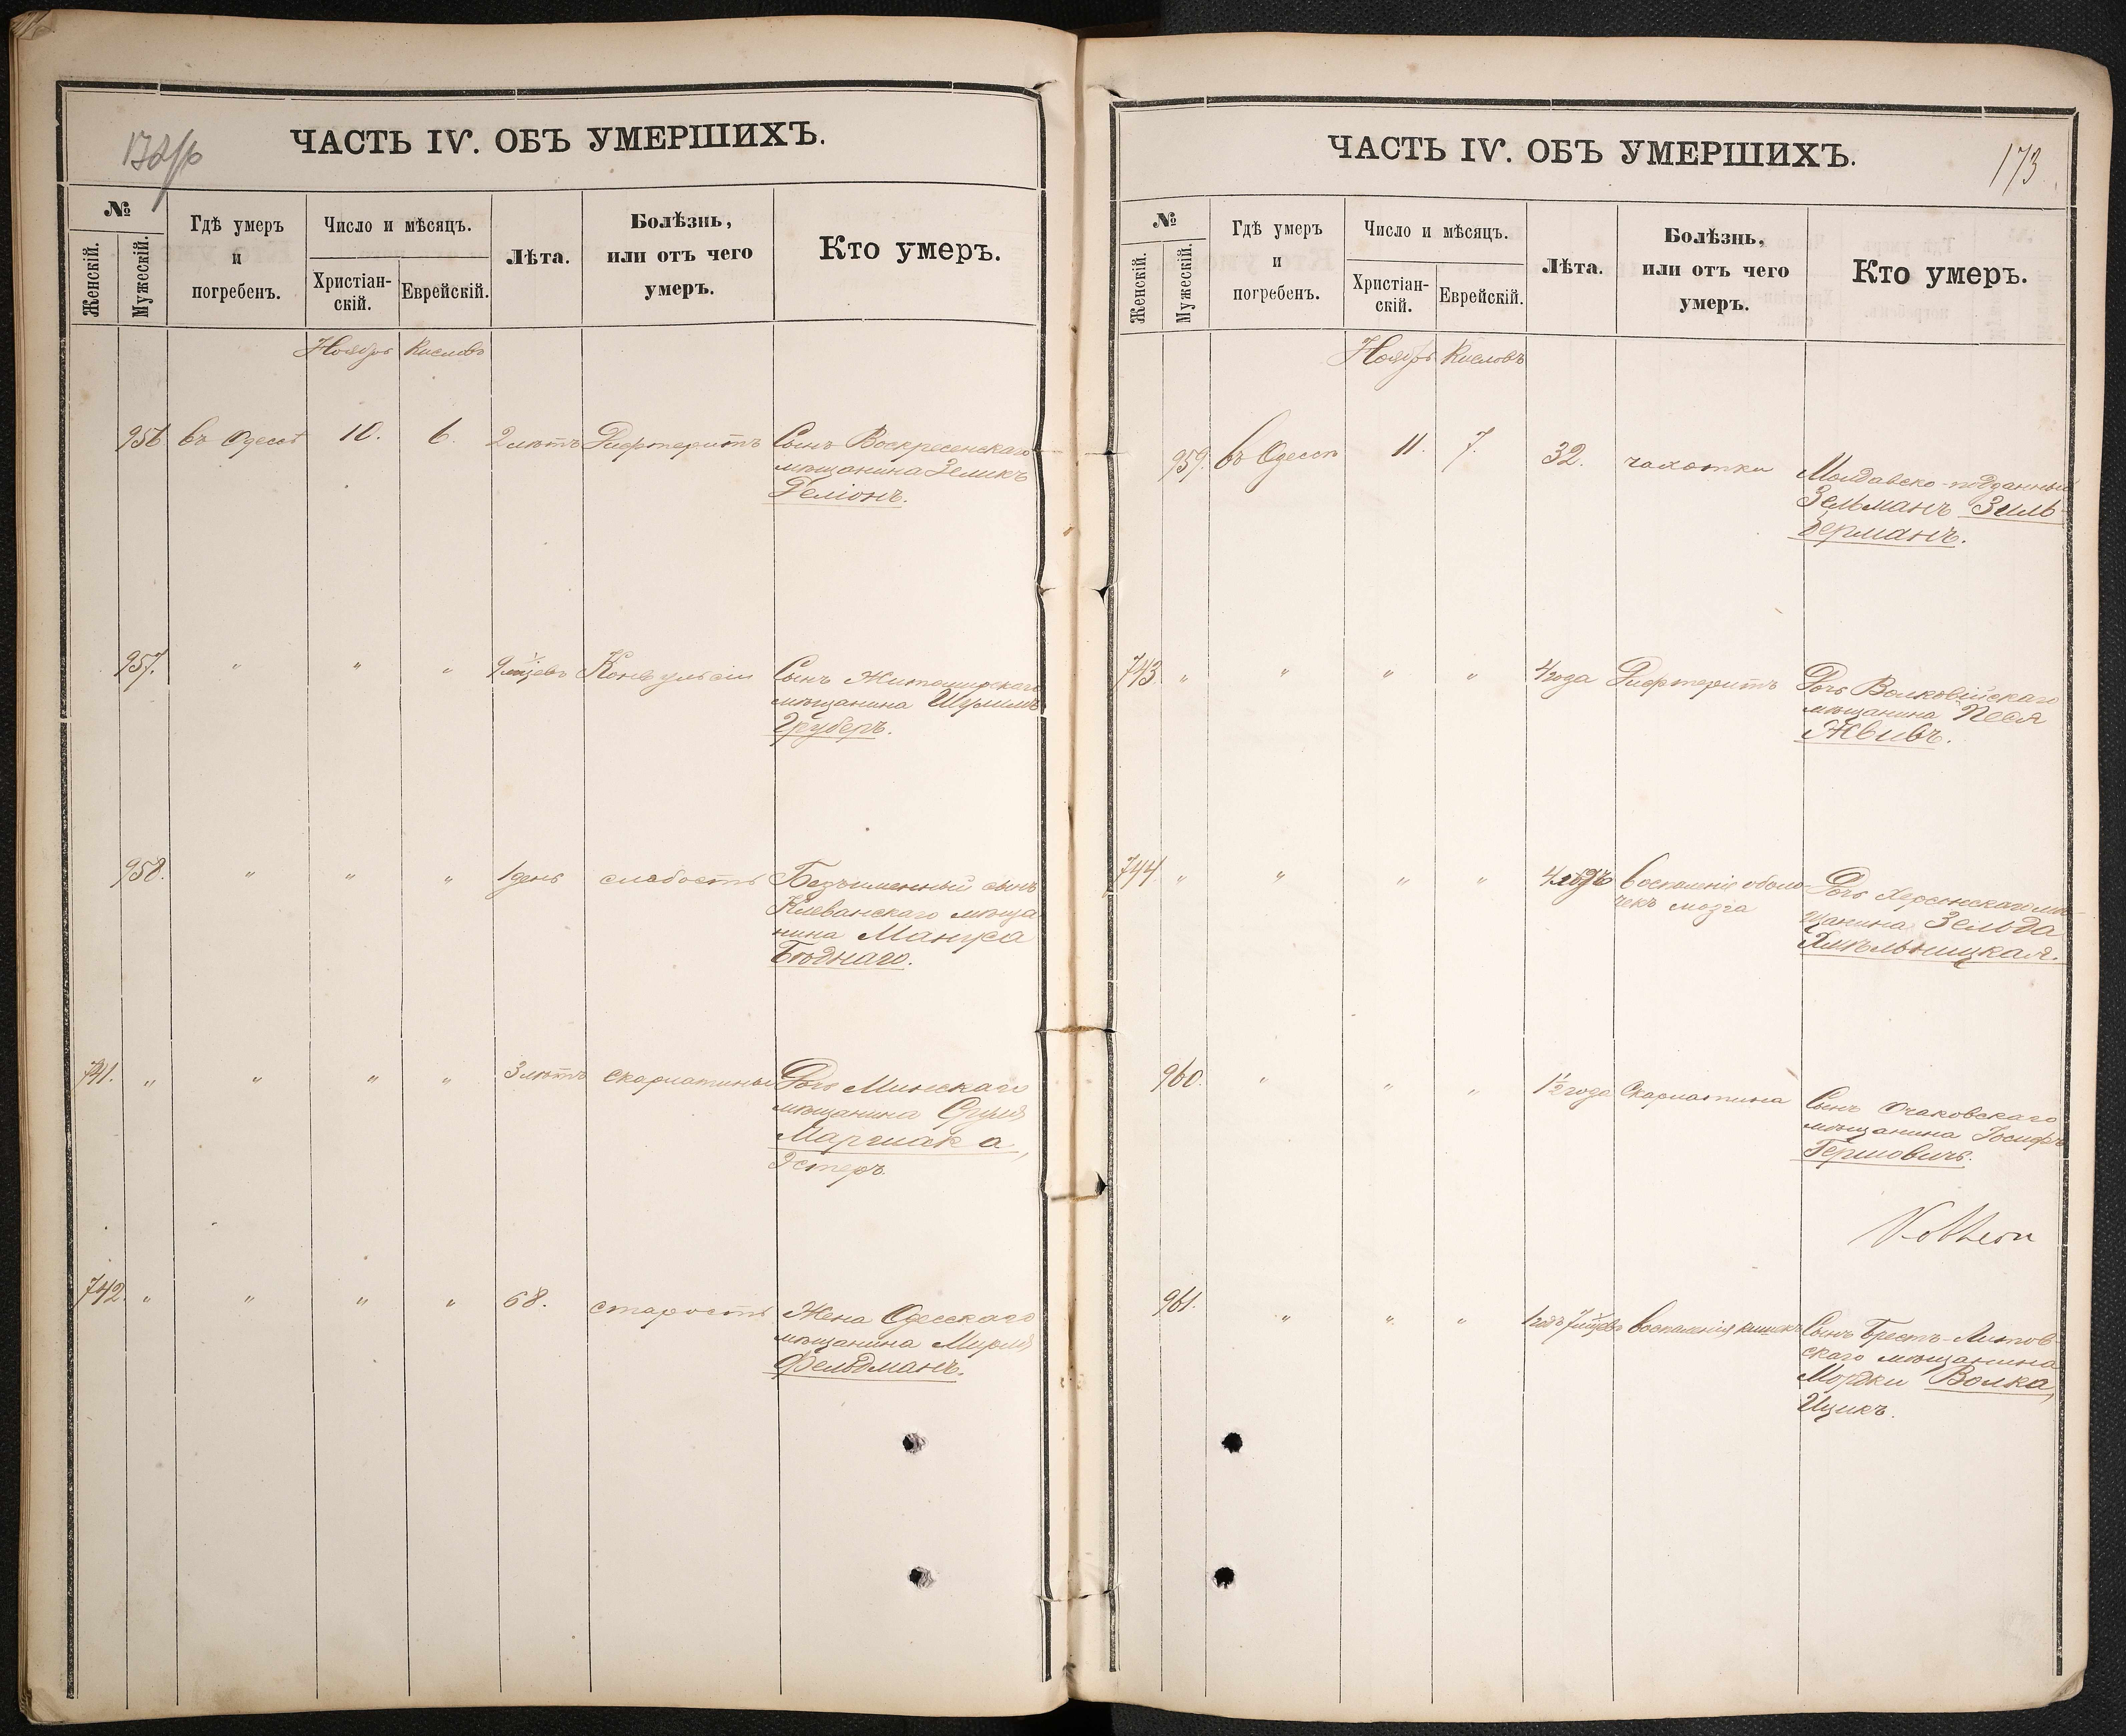 ЧАСТЬ IV. ОБЪ УМЕРШИХЪ.
№
Женскій.
Мужескій.
Гдѣ умеръ
и
погребенъ.
Число и мѣсяцъ.
Христіан-
скій.
Еврейскій.
Лѣта.
Болѣзнь,
или отъ чего
умеръ.
Кто умеръ.
Ноябрь Кислевъ
956 въ Одессѣ 10. 6. 2 лѣтъ Дифтеритъ Сынъ Воскресенскаго
мѣщанина Зеликъ
Геліонъ.
957. " " " 9 мѣсяцевъ Конвульсіи Сынъ Житомирскаго
мѣщанина Шулимъ
Груберъ.
958. " " " 1 день слабость Безъименный сынъ
Клеванскаго мѣща
нина Мануса
Бѣднаго.
741. " " " " 3 лѣтъ скарлатины Дочь Минскаго
мѣщанина Сруля
Маршака,
Эстеръ.
742. " " " " 68. старость Жена Одесскаго
мѣщанина Мирля
Фельдманъ.
ЧАСТЬ IV. ОБЪ УМЕРШИХЪ.
173
№
Женскій.
Мужескій.
Гдѣ умеръ
и
погребенъ.
Число и мѣсяцъ.
Христіан-
скій.
Еврейскій.
Лѣта.
Болѣзнь,
или отъ чего
умеръ.
Кто умеръ.
Ноябрь Кислевъ
959. въ Одессѣ 11. 7. 32. чахотки Молдавско-подданный
Зельманъ Зиль-
берманъ.
743. " " " " 4 года Дифтеритъ Дочь Волковійскаго
мѣщанина Песя
Жививъ.
744. " " " " воспаленія оболо-
чекъ мозга
Дочь Херсонскаго мѣ-
щанина Зелода
Хмѣльницкая.
960. " " " 1½ года Скарлатина Сынъ Очаковскаго
мѣщанина Іосифъ
Гершовичъ.
961. " " " 1 годъ 7 мѣсяцевъ воспаленія кишекъ Сынъ Брестъ-Литов
скаго мѣщанина
Мордки Волка,
Ицикъ.